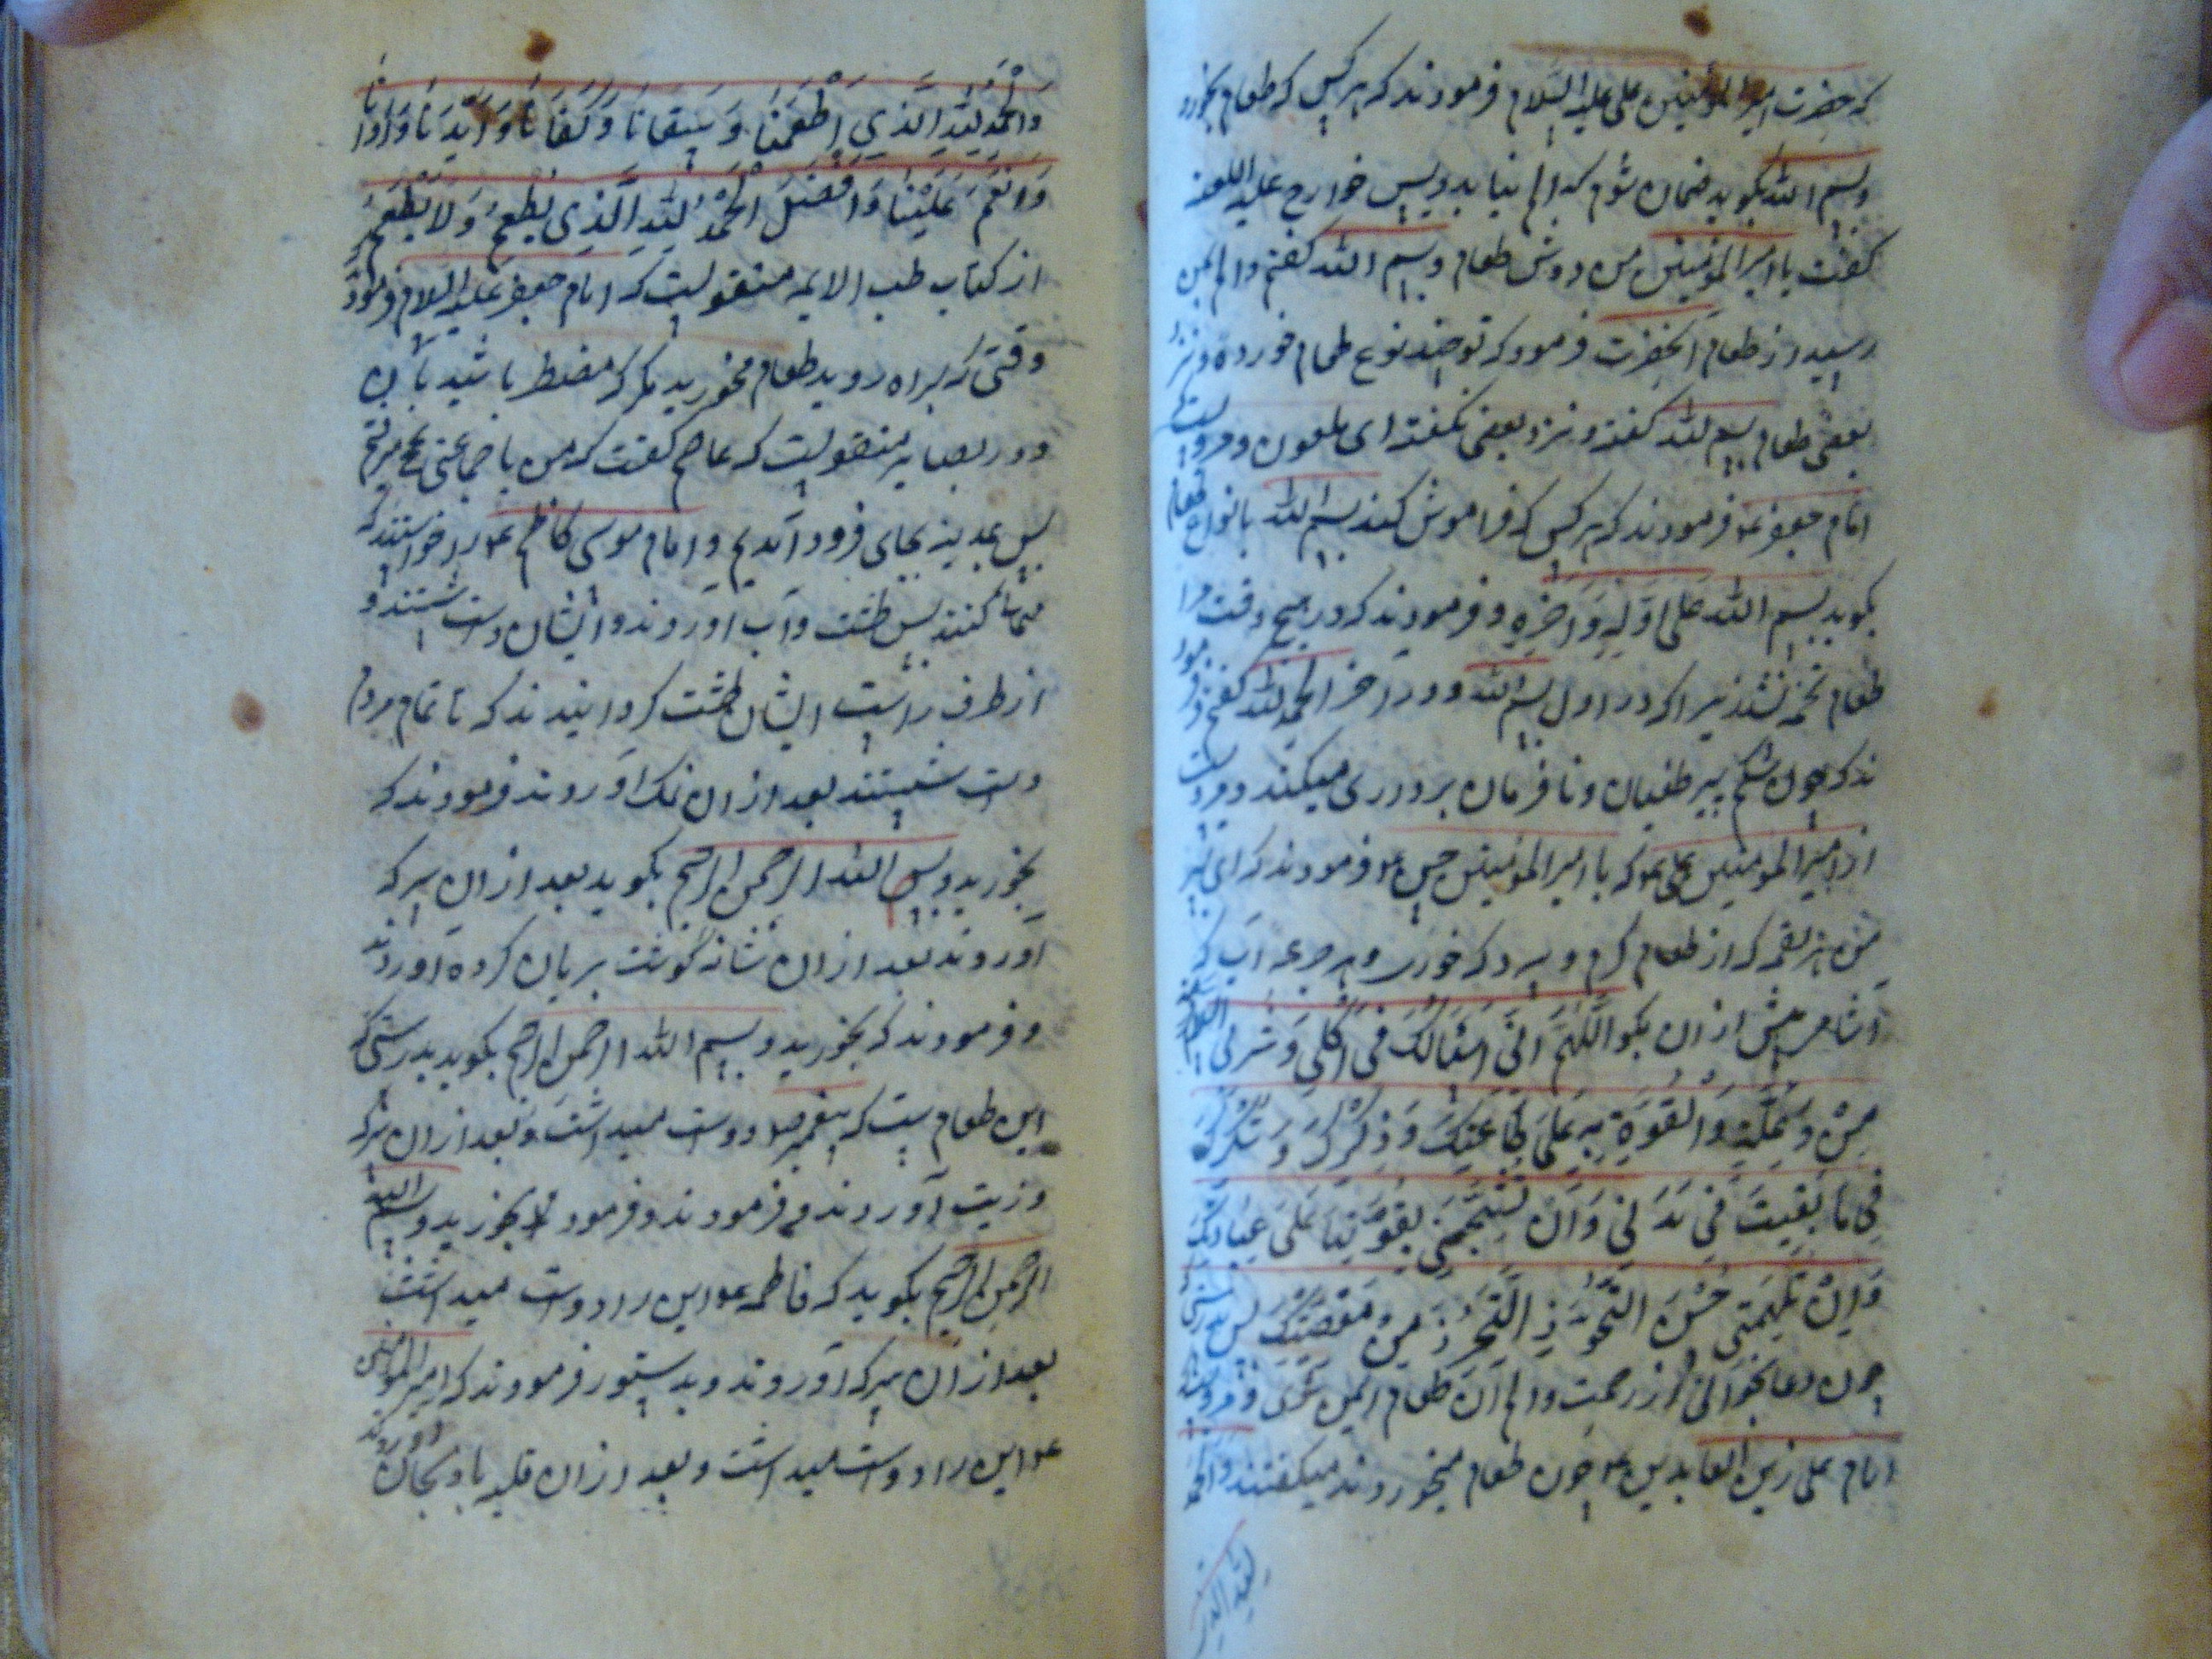 که حضرت امیر المؤمنین علی علیه السلام فرمودند که هر کس که طعام بخورد
وبسم الله بگوید ضمان شوم که الم نیابد وپس خوارج علیه اللعنه
کفت یا امیر المؤمنین من دوش طعام وبسم الله کفتم والم بمن
رسید از طعام آنحضرت فرمود که تو چند نوع طعام خورده ونزد
بعضی طعام بسم الله کفته ونزد بعضی نکفته ای ملعون ومرویست
امام جعفر ع فرمودند که هر کس که فراموش کند بسم الله بانواع طعام
بکوید بسم الله علی اوله وآخره وفرمودند که در هیچ وقت مرا
طعام تخمه نشد زیرا که در اول بسم الله ودر آخر الحمد لله کفتم وفرمود
ند که چون شکم سیر طغیان ونا فرمان برداری میکند ومرویست
از امیر المؤمنین علی ع که با امیر المؤمنین حسن ع فرمودند که ای پسر
من هر لقمه که از طعام کرم وسرد که خوری وهر جرعه آب که
آشامی پیش از آن بکو اللهم انی اسئالک فی اکلی وشربی السلامة
من وعکته والقوة به علی طاعتک وذکرک وشکرک
فی ما بقیت فی بدنی وان تشجعنی بقوتها علی عبادتک
وان تلهمنی حسن التحرز من معصیتک پس بدرستی که
چون دعا بخوانی از زحمت والم آن طعام ایمن شوی ومرویست
امام علی زین العابدین ع چون طعام میخوردند میکفتند والحمد
لله الذی
والحمد لله الذی اطعمنا وسقانا وکفانا وایدنا وآوانا
وانعم علینا وافضل الحمد لله الذی یطعم ولا یطعم
از کتاب طب الائمه منقولست که امام جعفر علیه السلام فرمود
وقتی که براه روید طعام مخورید مکر که مضطر باشید بآن
ودر بصایر منقولست که عاصم کفت که من با جماعتی بحج رفتم
پس بمدینه بجای فرود آمدیم وامام موسی کاظم ع را خواستند که
ضمان کنند پس طشت وآب آوردند وایشان دست شستند و
از طرف راست ایشان طشت کردانیدند که تا تمام مردم
دست شستند بعد از آن نمک آوردند فرمودند که
بخورید وبسم الله الرحمن الرحیم بکوید بعد از آن سرکه
آوردند بعد از آن شانه کوشت بریان کرده آوردند
وفرمودند که بخورید وبسم الله الرحمن الرحیم بکوید بدرستی که
این طعامیست که پیغمبر ص دوست میداشت وبعد از آن سرکه
وزیت آوردند وفرمودند وفرمود بخورید وبسم الله
الرحمن الرحیم بکوید که فاطمه ع این را دوست میداشت
بعد از آن سرکه آوردند وبدستور فرمودند که امیر المؤمنین
ع این را دوست میداشت وبعد از آن قلیه بادنجان آوردند